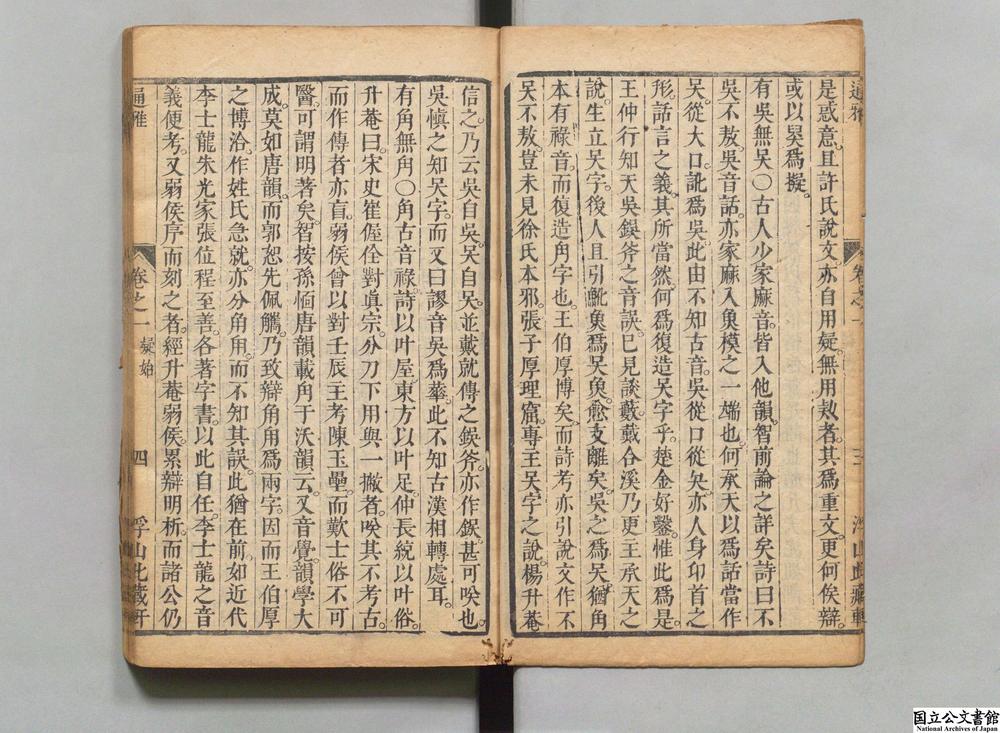 通雅
卷之一
三
浮山此藏軒
是惑意。且許氏說文亦自用疑。無用𣣋者。其爲重文。更何俟辯。
或以㠱爲擬。
有吳無吴〇古人少家麻音。皆入他韻。智前論之詳矣。詩曰不
吳不敖。吳音話。亦家麻入魚模之一端也。何承天以爲話當作
吴。從大口。訛爲吳。此由不知古音。吳從口從夨。亦人身卬首之
形。話言之義。其所當然。何爲復造吴字乎。楚金好鑿。惟此爲是。
王仲行知天吳鋘斧之音誤。已見談藪。戴合溪乃更主承天之
說。生立吴字。後人且引䰲魚爲吴魚。愈支離矣。吳之爲吴。猶角
本有祿音。而復造甪字也。王伯厚博矣。而詩考亦引說文作不
吴不敖。豈未見徐氏本邪。張子厚理窟。專主吴字之說。楊升菴
信之。乃云吳自吳。吴自吴。並戴就傳之鋘斧。亦作鋘。甚可唉也。
吳愼之知吴字。而又曰謬音吳爲華。此不知古漢相轉處耳。
有角無甪〇角古音祿。詩以叶屋。東方以叶足。仲長統以叶俗。
升菴曰。宋史崔偓佺對眞宗。分刀下用與一撇者。唉其不考古。
而作傳者亦盲。弱侯曾以對壬辰王考陳玉壘。而歎士俗不可
醫。可謂明著矣。智按孫愐唐韻載甪于沃韻。云又音覺。韻學大
成。莫如唐韻。而郭恕先佩觿。乃致辯角甪爲兩字。因而王伯厚
之博洽。作姓氏急就。亦分角用。而不知其誤。此猶在前。如近代
李士龍朱光家張位程至善。各著字書。以此自任。李士龍之音
義便考。又弱侯序而刻之者。經升菴弱侯。累辯明析。而諸公仍
通雅
卷之一 疑始
四
浮山此藏軒
国立公文書館
National Archives of Japan